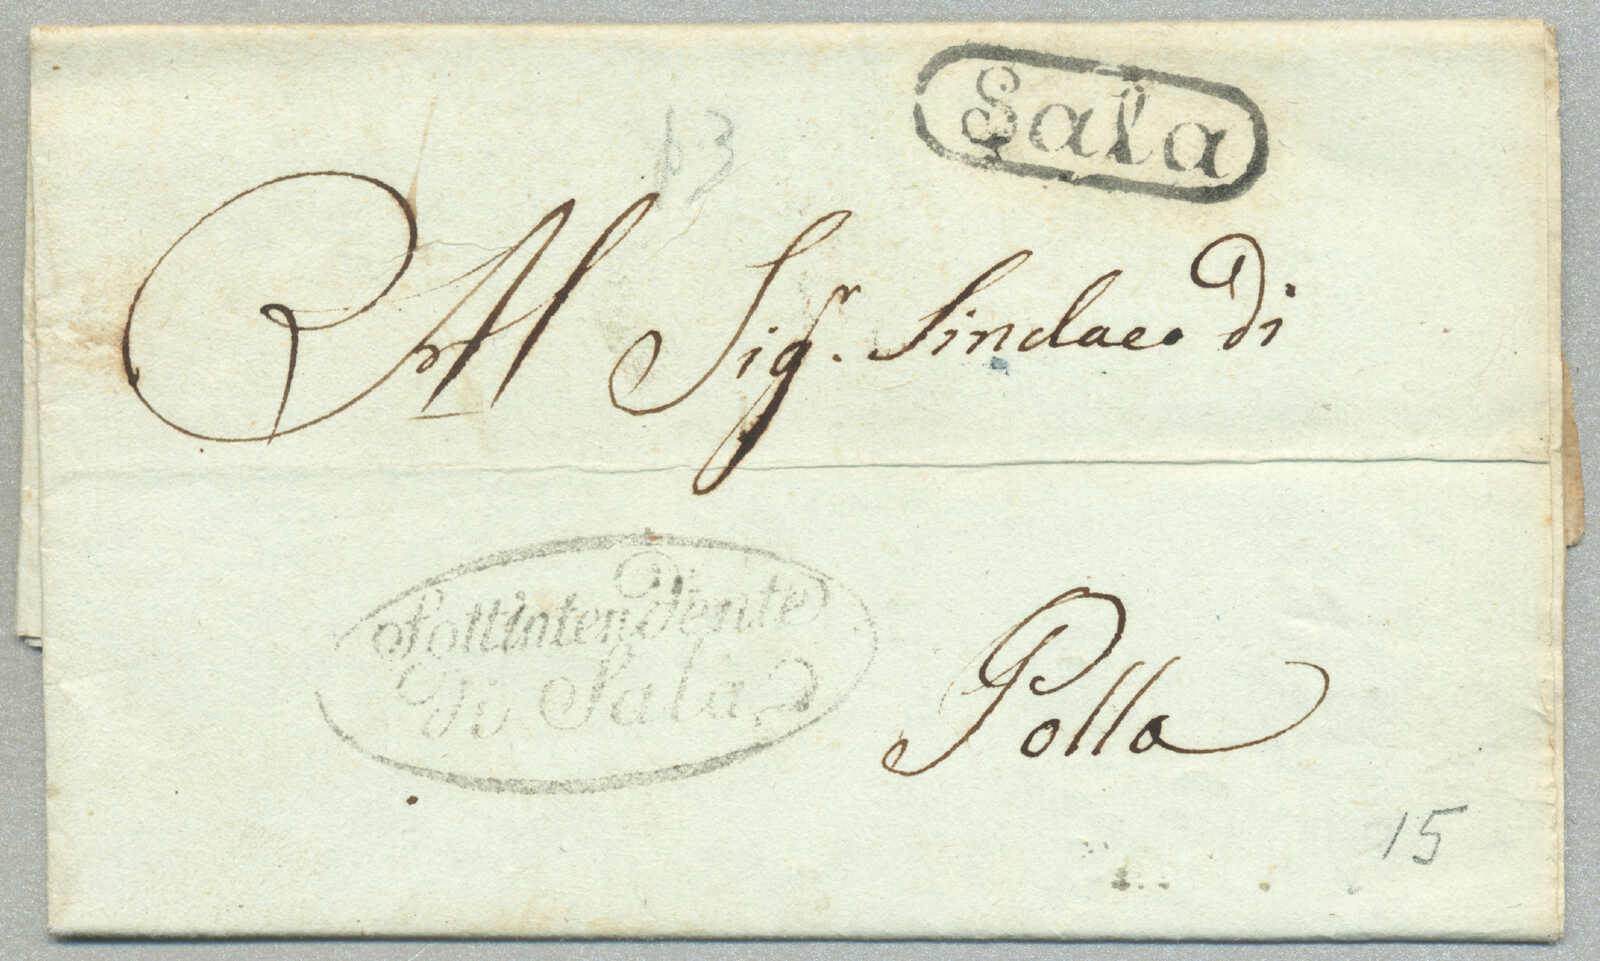 Sala
Al Sig.r Sindaco di
Sottintendente
di Sala
Polla
15